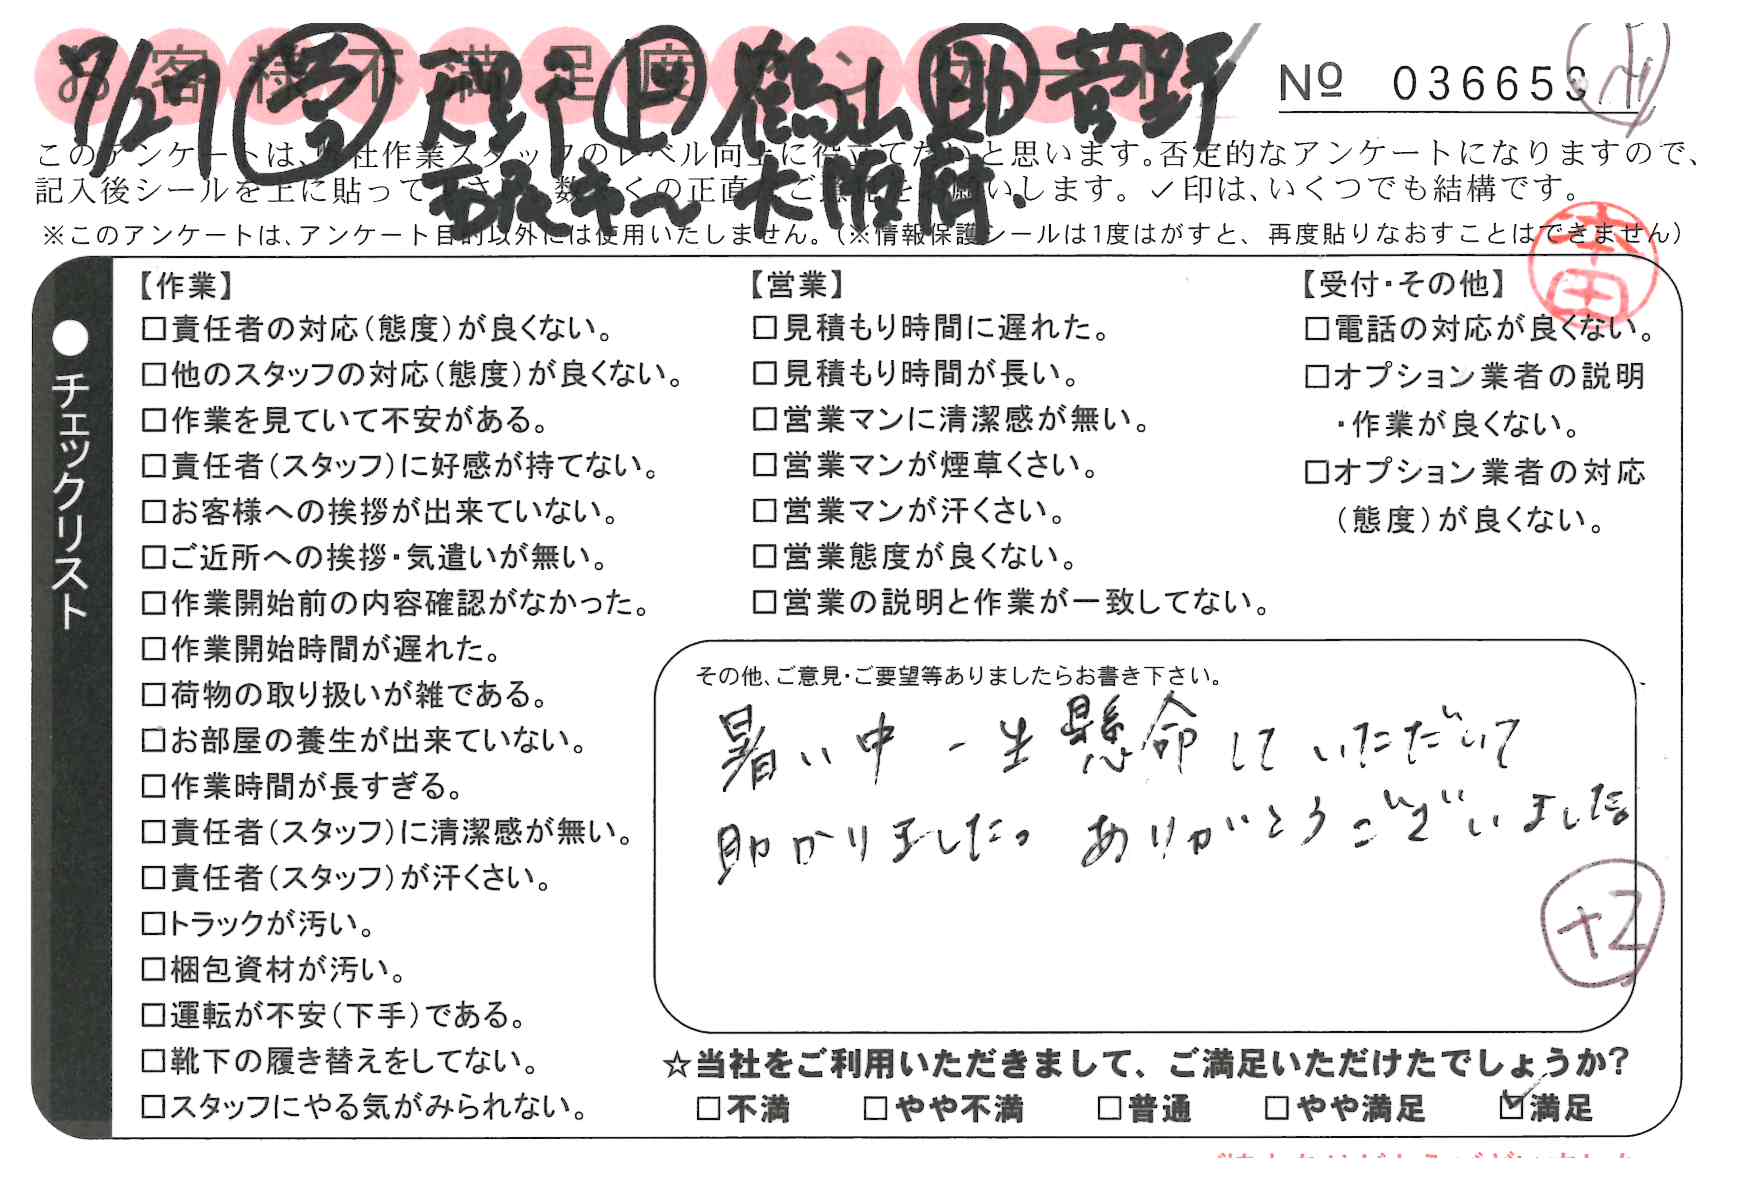 お客様不満足度アンケート
7/27 営 天野 上 鶴山 助 菅野
大阪府.
Nº 036653
このアンケートは、弊社作業スタッフのレベル向上に役立てたいと思います。否定的なアンケートになりますので、
記入後シールを上に貼って下さい。数多くの正直なご意見をお願いします。✓印は、いくつでも結構です。
※このアンケートは、アンケート目的以外には使用いたしません。(※情報保護シールは1度はがすと、再度貼りなおすことはできません)
本田
●チェックリスト
【作業】
□責任者の対応(態度)が良くない。
□他のスタッフの対応(態度)が良くない。
□作業を見ていて不安がある。
□責任者(スタッフ)に好感が持てない。
□お客様への挨拶が出来ていない。
□ご近所への挨拶・気遣いが無い。
□作業開始前の内容確認がなかった。
□作業開始時間が遅れた。
□荷物の取り扱いが雑である。
□お部屋の養生が出来ていない。
□作業時間が長すぎる。
□責任者(スタッフ)に清潔感が無い。
□責任者(スタッフ)が汗くさい。
□トラックが汚い。
□梱包資材が汚い。
□運転が不安(下手)である。
□靴下の履き替えをしてない。
□スタッフにやる気がみられない。
【営業】
□見積もり時間に遅れた。
□見積もり時間が長い。
□営業マンに清潔感が無い。
□営業マンが煙草くさい。
□営業マンが汗くさい。
□営業態度が良くない。
□営業の説明と作業が一致してない。
【受付・その他】
□電話の対応が良くない。
□オプション業者の説明
・作業が良くない。
□オプション業者の対応
(態度)が良くない。
その他、ご意見・ご要望等ありましたらお書き下さい。
暑い中一生懸命していただいて
助かりました。ありがとうございました
+2
☆当社をご利用いただきまして、ご満足いただけたでしょうか?
□不満 □やや不満 □普通 □やや満足 ☑満足